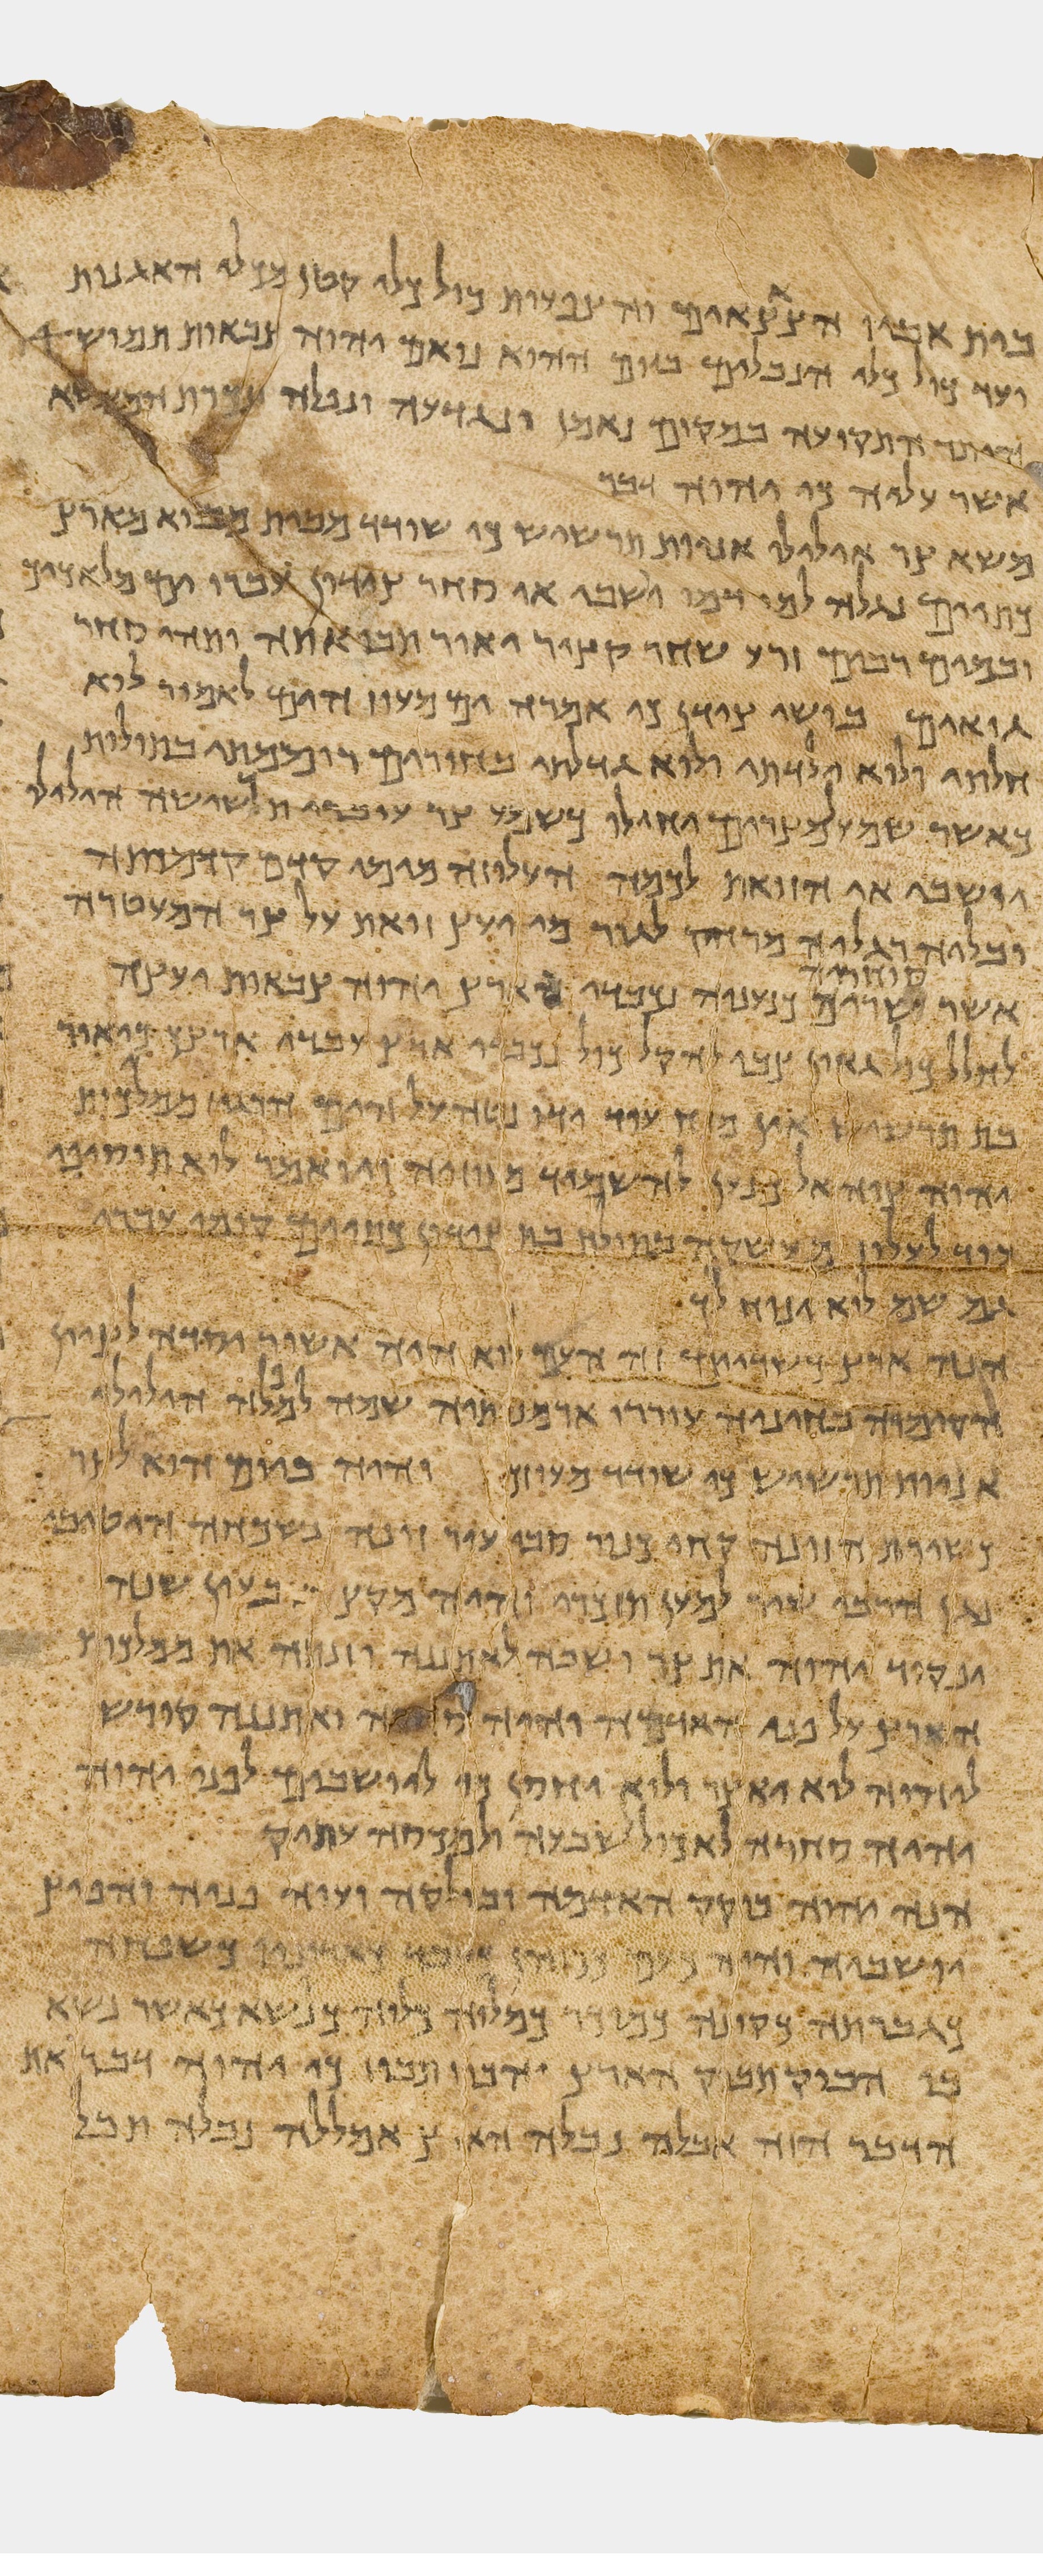 בית אביו הצאצאים והצפעות כול כלי קטן מכלי האגנות
ועד כול כלי הנבלים ביום ההוא נואם יהוה צבאות תמוש
היתד התקועה במקום נאמן ונגדעה ונפלה ונכרת המשא
אשר עליה כי יהוה דבר
משא צר אילילו אניות תרשיש כי שודד מבית מבוא מארץ
כתיים נגלה למו דמו יושבי אי סחר צידון עברו ים מלאכיך
ובמים רבים זרע שחר קציר יאור תבואתה ותהי סחר
גואים בושי צידון כי אמרה ים מעוז הים לאמור לוא
חלתי ולוא ילדתי ולוא גדלתי בחורים רוממתי בתולות
כאשר שמע למצרים יחילו כשמע צר עוברי תרשישה הילילו
יושבי אי הזואת לכמה העליזה מימי קדם קדמותה
יבילוה רגליה מרחוק לגור מי יעץ זואת על צר המעטרה
אשר סוחריה שרים כנעניה נכבדי ארץ יהוה צבאות יעצה
לחלל כול גאון צבי להקל כול נכבדי ארץ עבדי ארצך כיאור
בת תרשיש אין מזח עוד ידו נטה על הים הרגיז ממלכות
יהוה צוה אל כנען להשמיד מעוזיה ויואמר לוא תוסיפי
עוד לעלוז המעושקה בתולת בת צידון כתיים קומי עבורי
גם שם לוא ינוח לך
הנה ארץ כשדיים זה העם לוא היה אשור יסדה לציים
הקימו בחיניה עוררו ארמנותיה שמה למפלה הילילו
אניות תרשיש כי שודד מעוזכן והיה ביום ההוא לצר
כשירת הזונה קחי כנור סובי עיר זונה נשכחה היטיבי
נגן הרבי שיר למען תזכרי והיה מקץ שבעים שנה
יפקוד יהוה את צר ושבה לאתננה וזנתה את ממלכות
הארץ על פני האדמה והיה סחרה ואתננה קודש
ליהוה לוא יאצר ולוא יחסן כי ליושבים לפני יהוה
יהיה סחרה לאכול לשבעה ולמכסה עתיק
הנה יהוה בוקק האדמה ובולקה ועוה פניה והפיץ
יושביה והיה כעם ככוהן כעבד כאדוניו כשפחה
כגברתה כקונה כמוכר כמלוה כלוה כנשא כאשר נשא
בו הבוק תבוק הארץ והבוז תבוז כי יהוה דבר את
הדבר הזה אבלה נבלה הארץ אמללה נבלה תבל